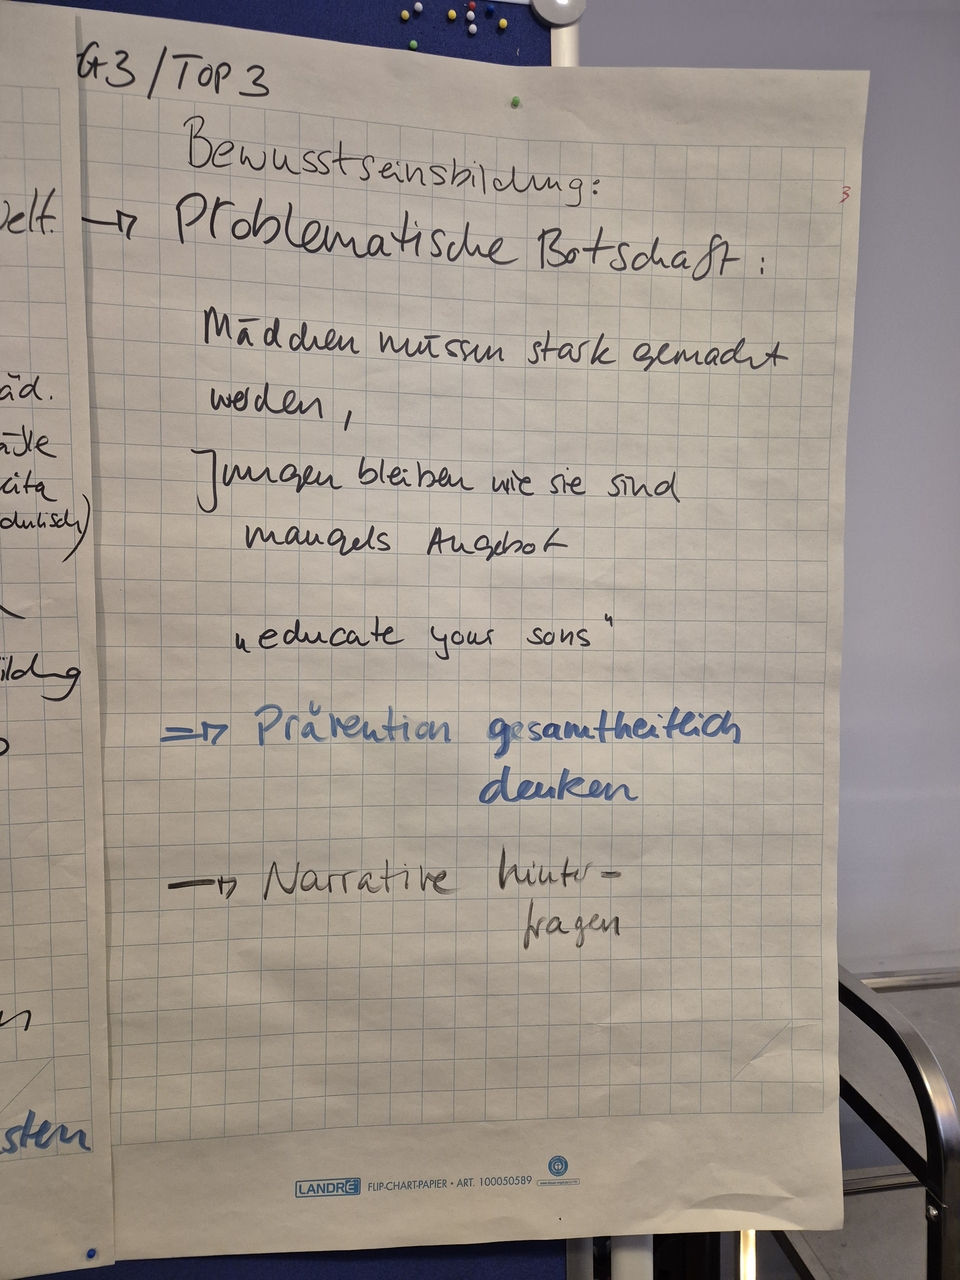 G3 / TOP 3
Bewusstseinsbildung:
3
→ Problematische Botschaft:
Mädchen müssen stark gemacht
werden,
Jungen bleiben wie sie sind
mangels Angebot
„educate your sons"
⇒ Prävention gesamtheitlich
denken
→ Narrative hinter-
fragen
äd.
sten
LANDRÉ FLIP-CHART-PAPIER • ART. 100050589